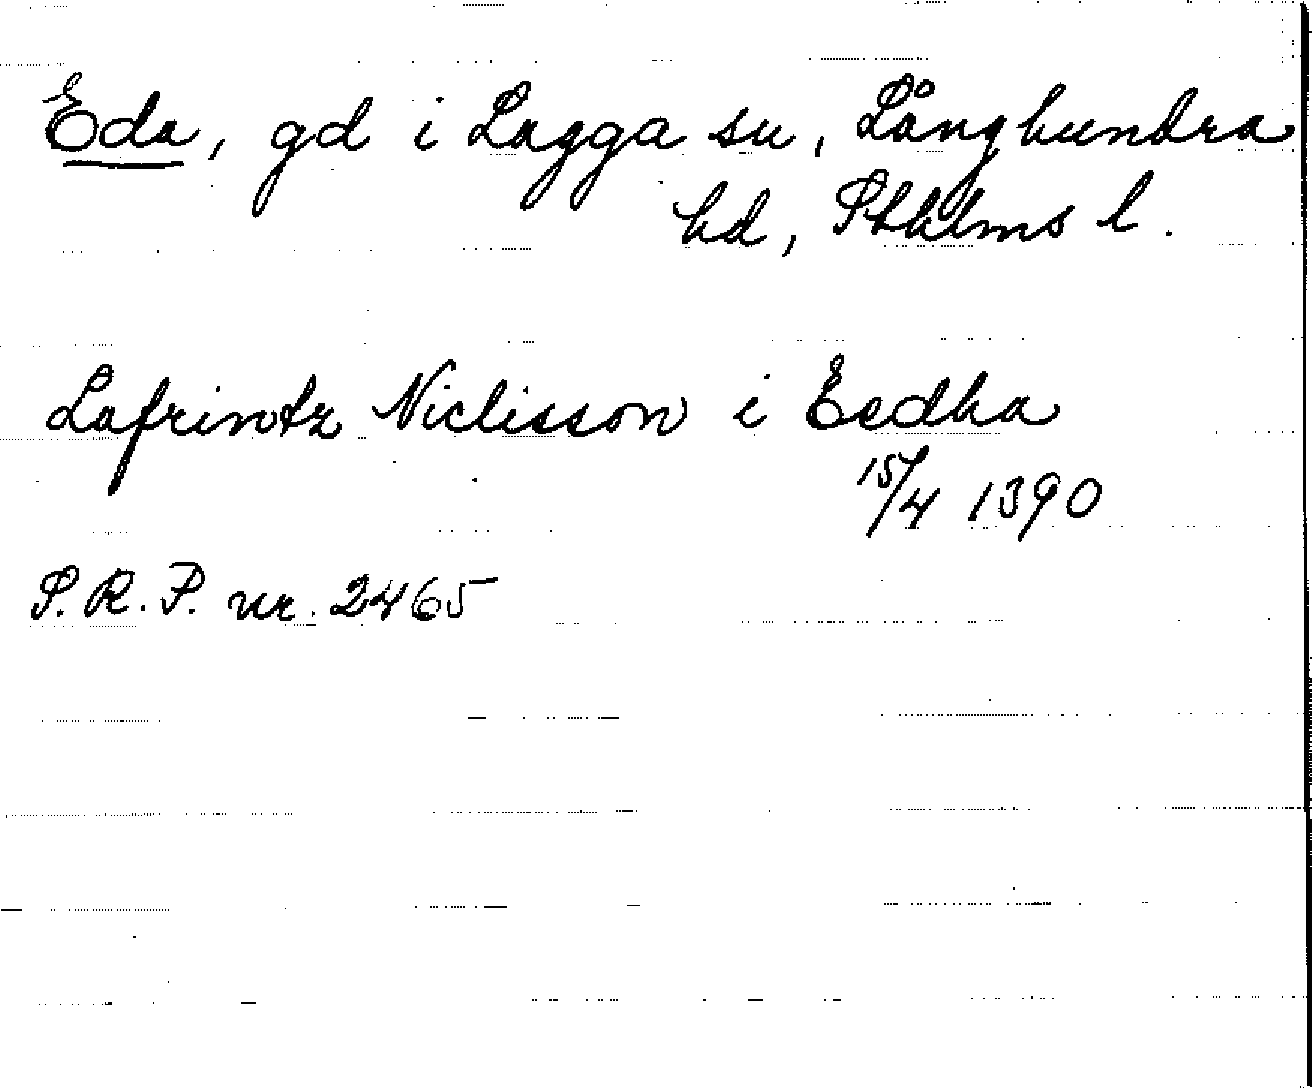 Eda, gd i Lagga sn, Långhundra
hd, Sthlms l.
Lafrintz Niclisson i Eedha
15/4 1390
S.R.P. nr. 2465